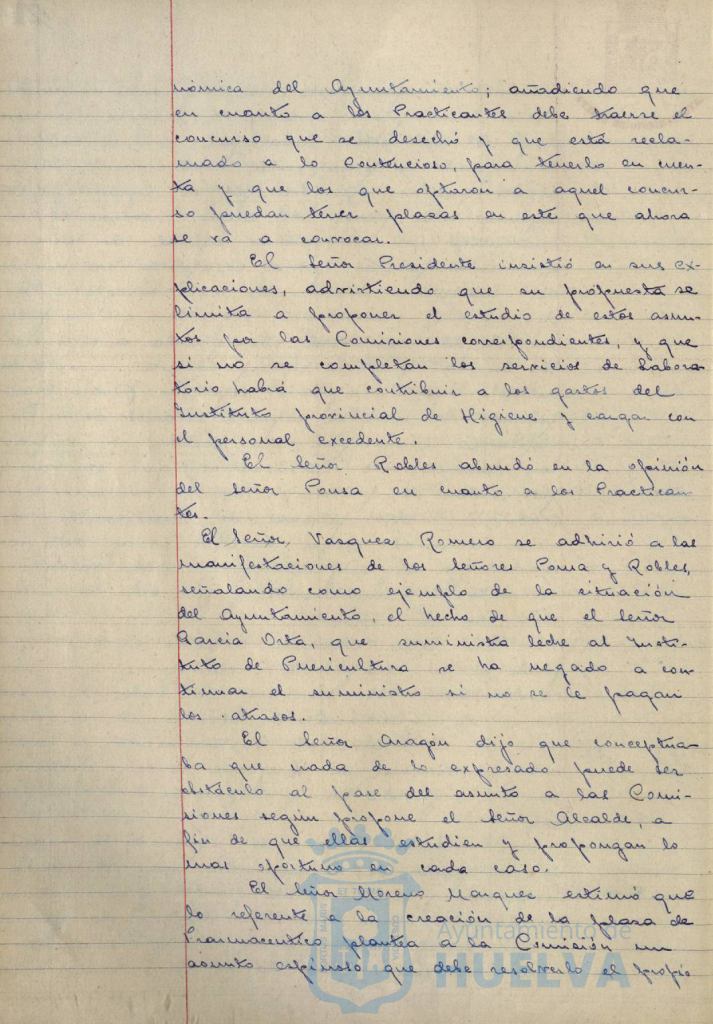 nómica del Ayuntamiento; añadiendo que
en cuanto a los Practicantes debe traerse el
concurso que se desechó y que está recla-
mado a lo Contencioso, para tenerlo en cuen-
ta y que los que optaron a aquel concur-
so puedan tener plazas en este que ahora
se va a convocar.
El Señor Presidente insistió en sus ex-
plicaciones, advirtiendo que su propuesta se
limita a proponer el estudio de estos asun-
tos por las Comisiones correspondientes, y que
si no se completan los servicios de Labora-
torio habrá que contribuir a los gastos del
Instituto provincial de Higiene y cargar con
el personal excedente.
El Señor Robles abundó en la opinión
del Señor Ponsa en cuanto a los Practican-
tes.
El Señor Vasquez Romero se adhirió a las
manifestaciones de los Señores Ponsa y Robles,
señalando como ejemplo de la situación
del Ayuntamiento, el hecho de que el Señor
Garcia Orta, que suministra leche al Insti-
tuto de Puericultura se ha negado a con-
tinuar el suministro si no se le pagan
los atrasos.
El Señor Aragón dijo que conceptua-
ba que nada de lo expresado puede ser
obstáculo al pase del asunto a las Comi-
siones según propone el Señor Alcalde, a
fin de que ellas estudien y propongan lo
mas oportuno en cada caso.
El Señor Moreno Marquez estimó que
lo referente a la creación de la plaza de
Farmaceutico plantea a la Comisión un
asunto espinoso que debe resolverlo el propio
Ayuntamiento de
HUELVA